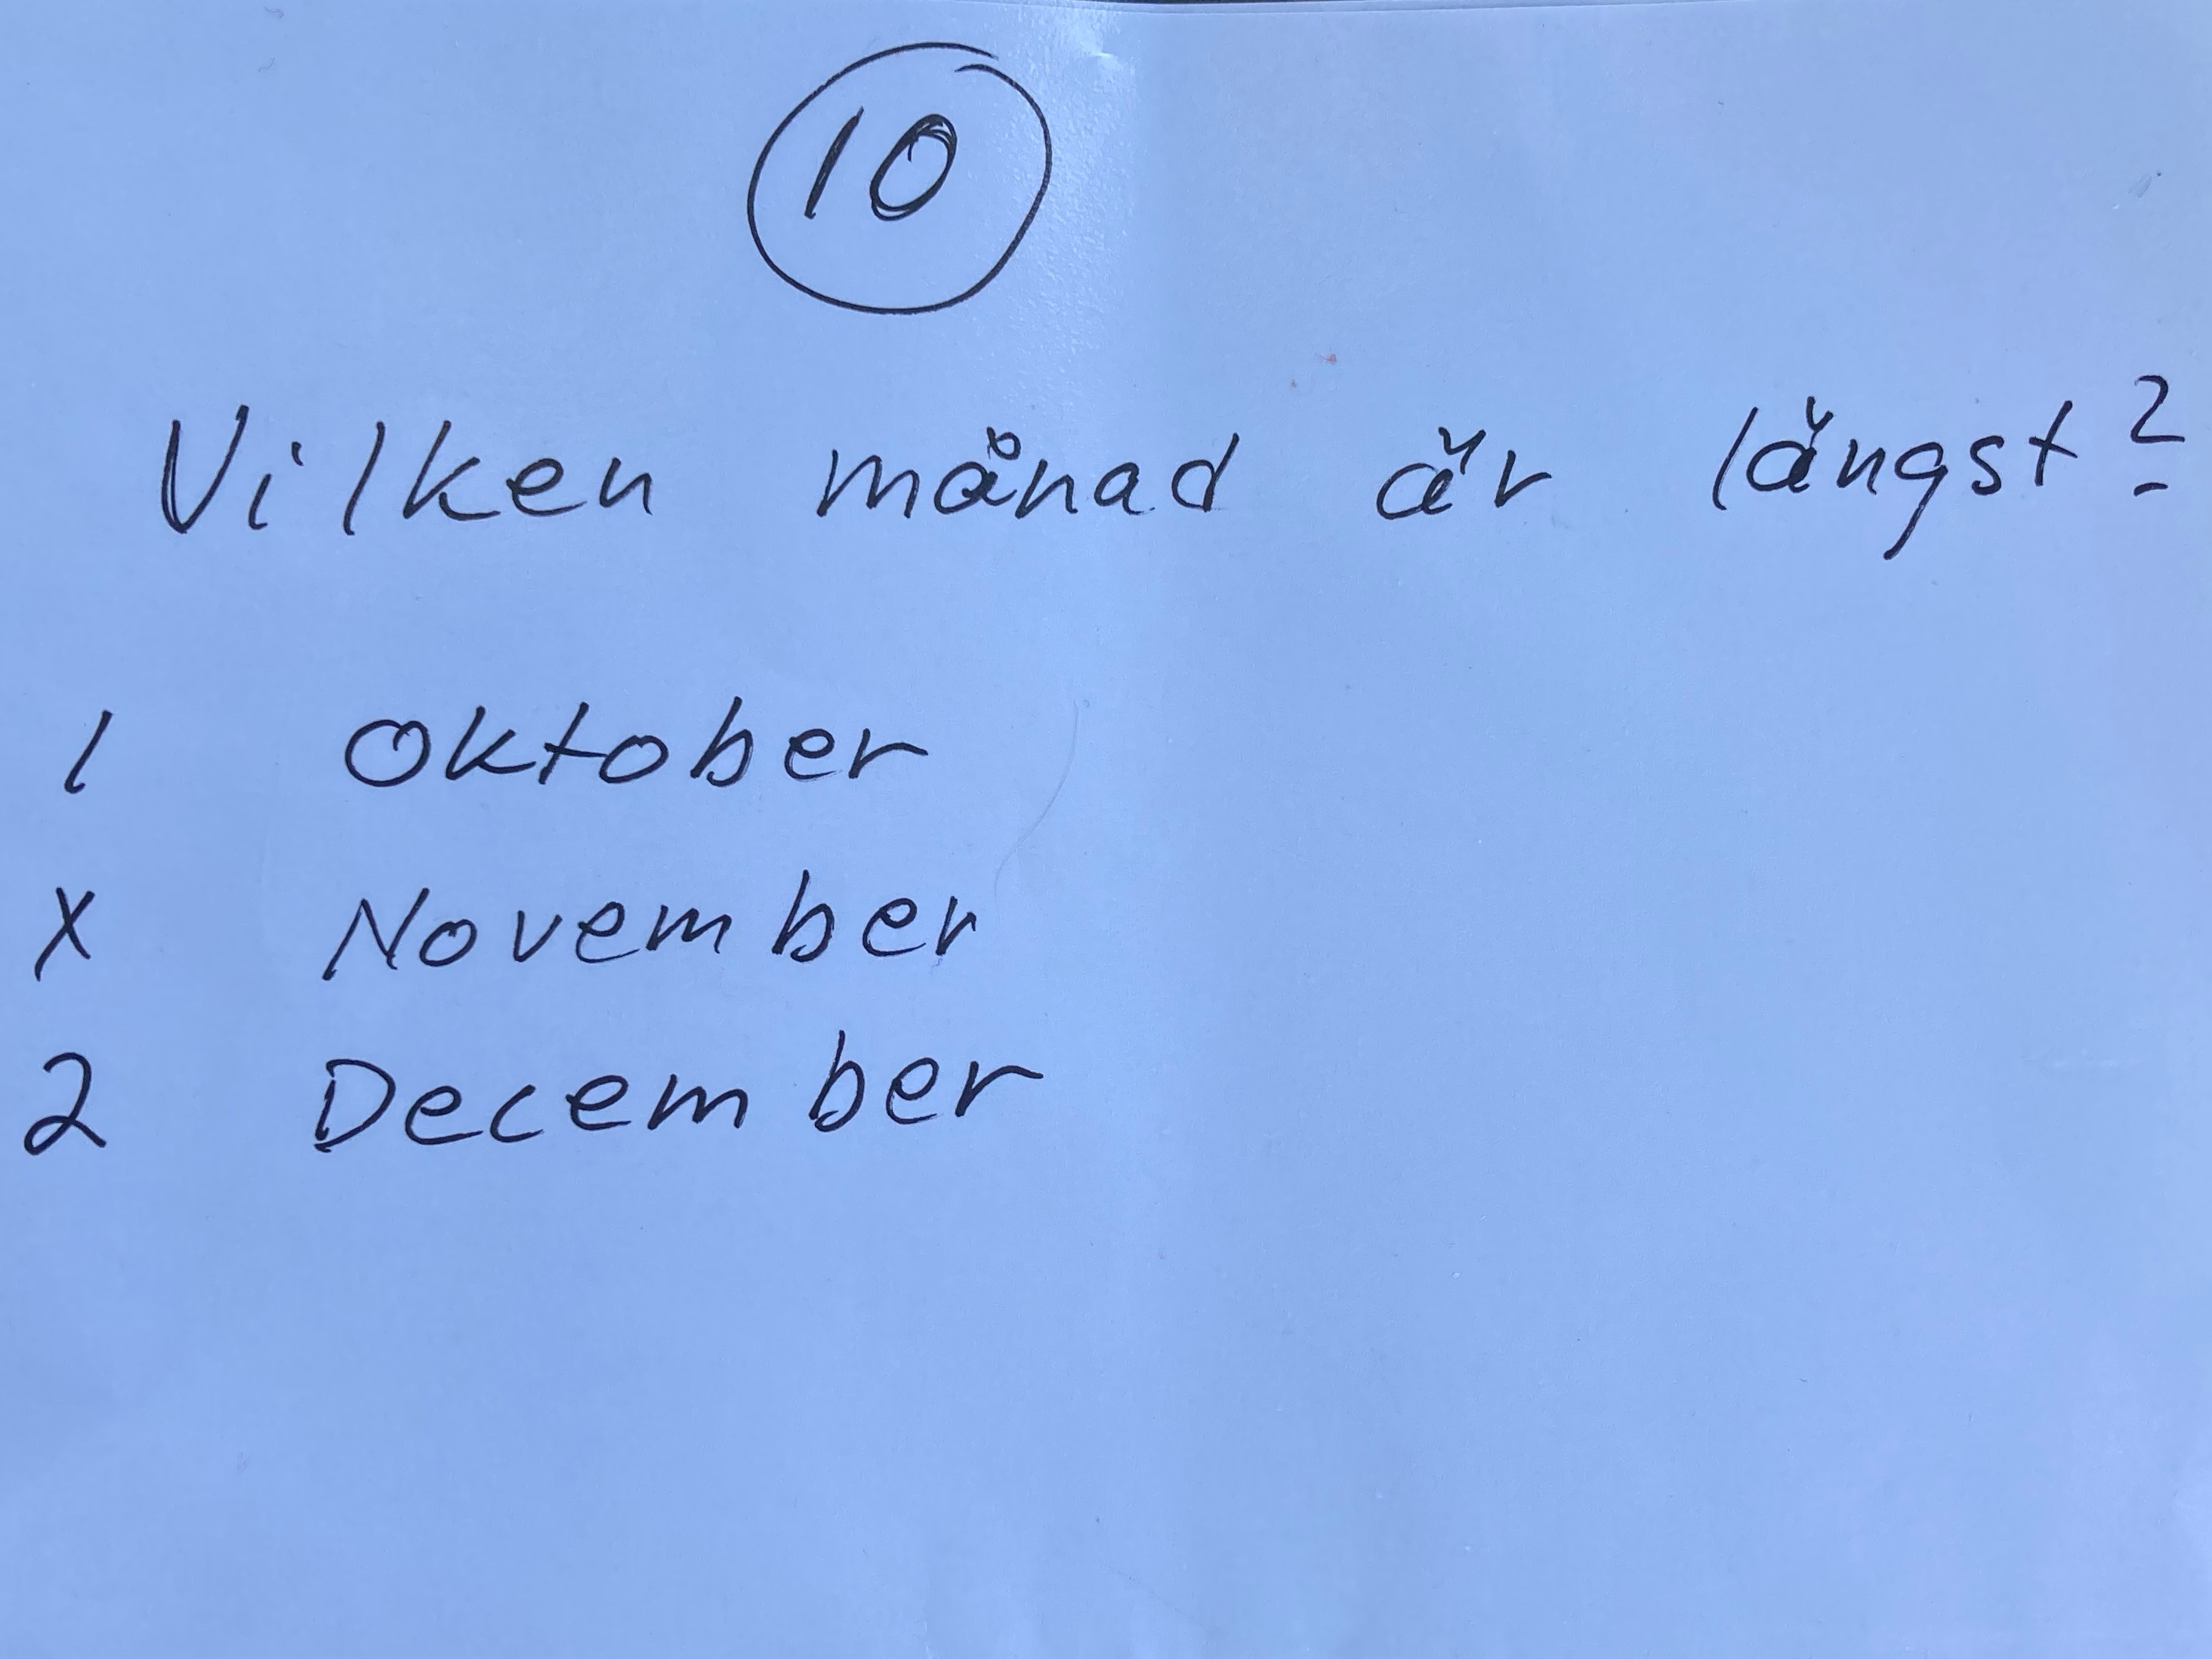 10
Vilken månad är längst?
1 Oktober
X November
2 December